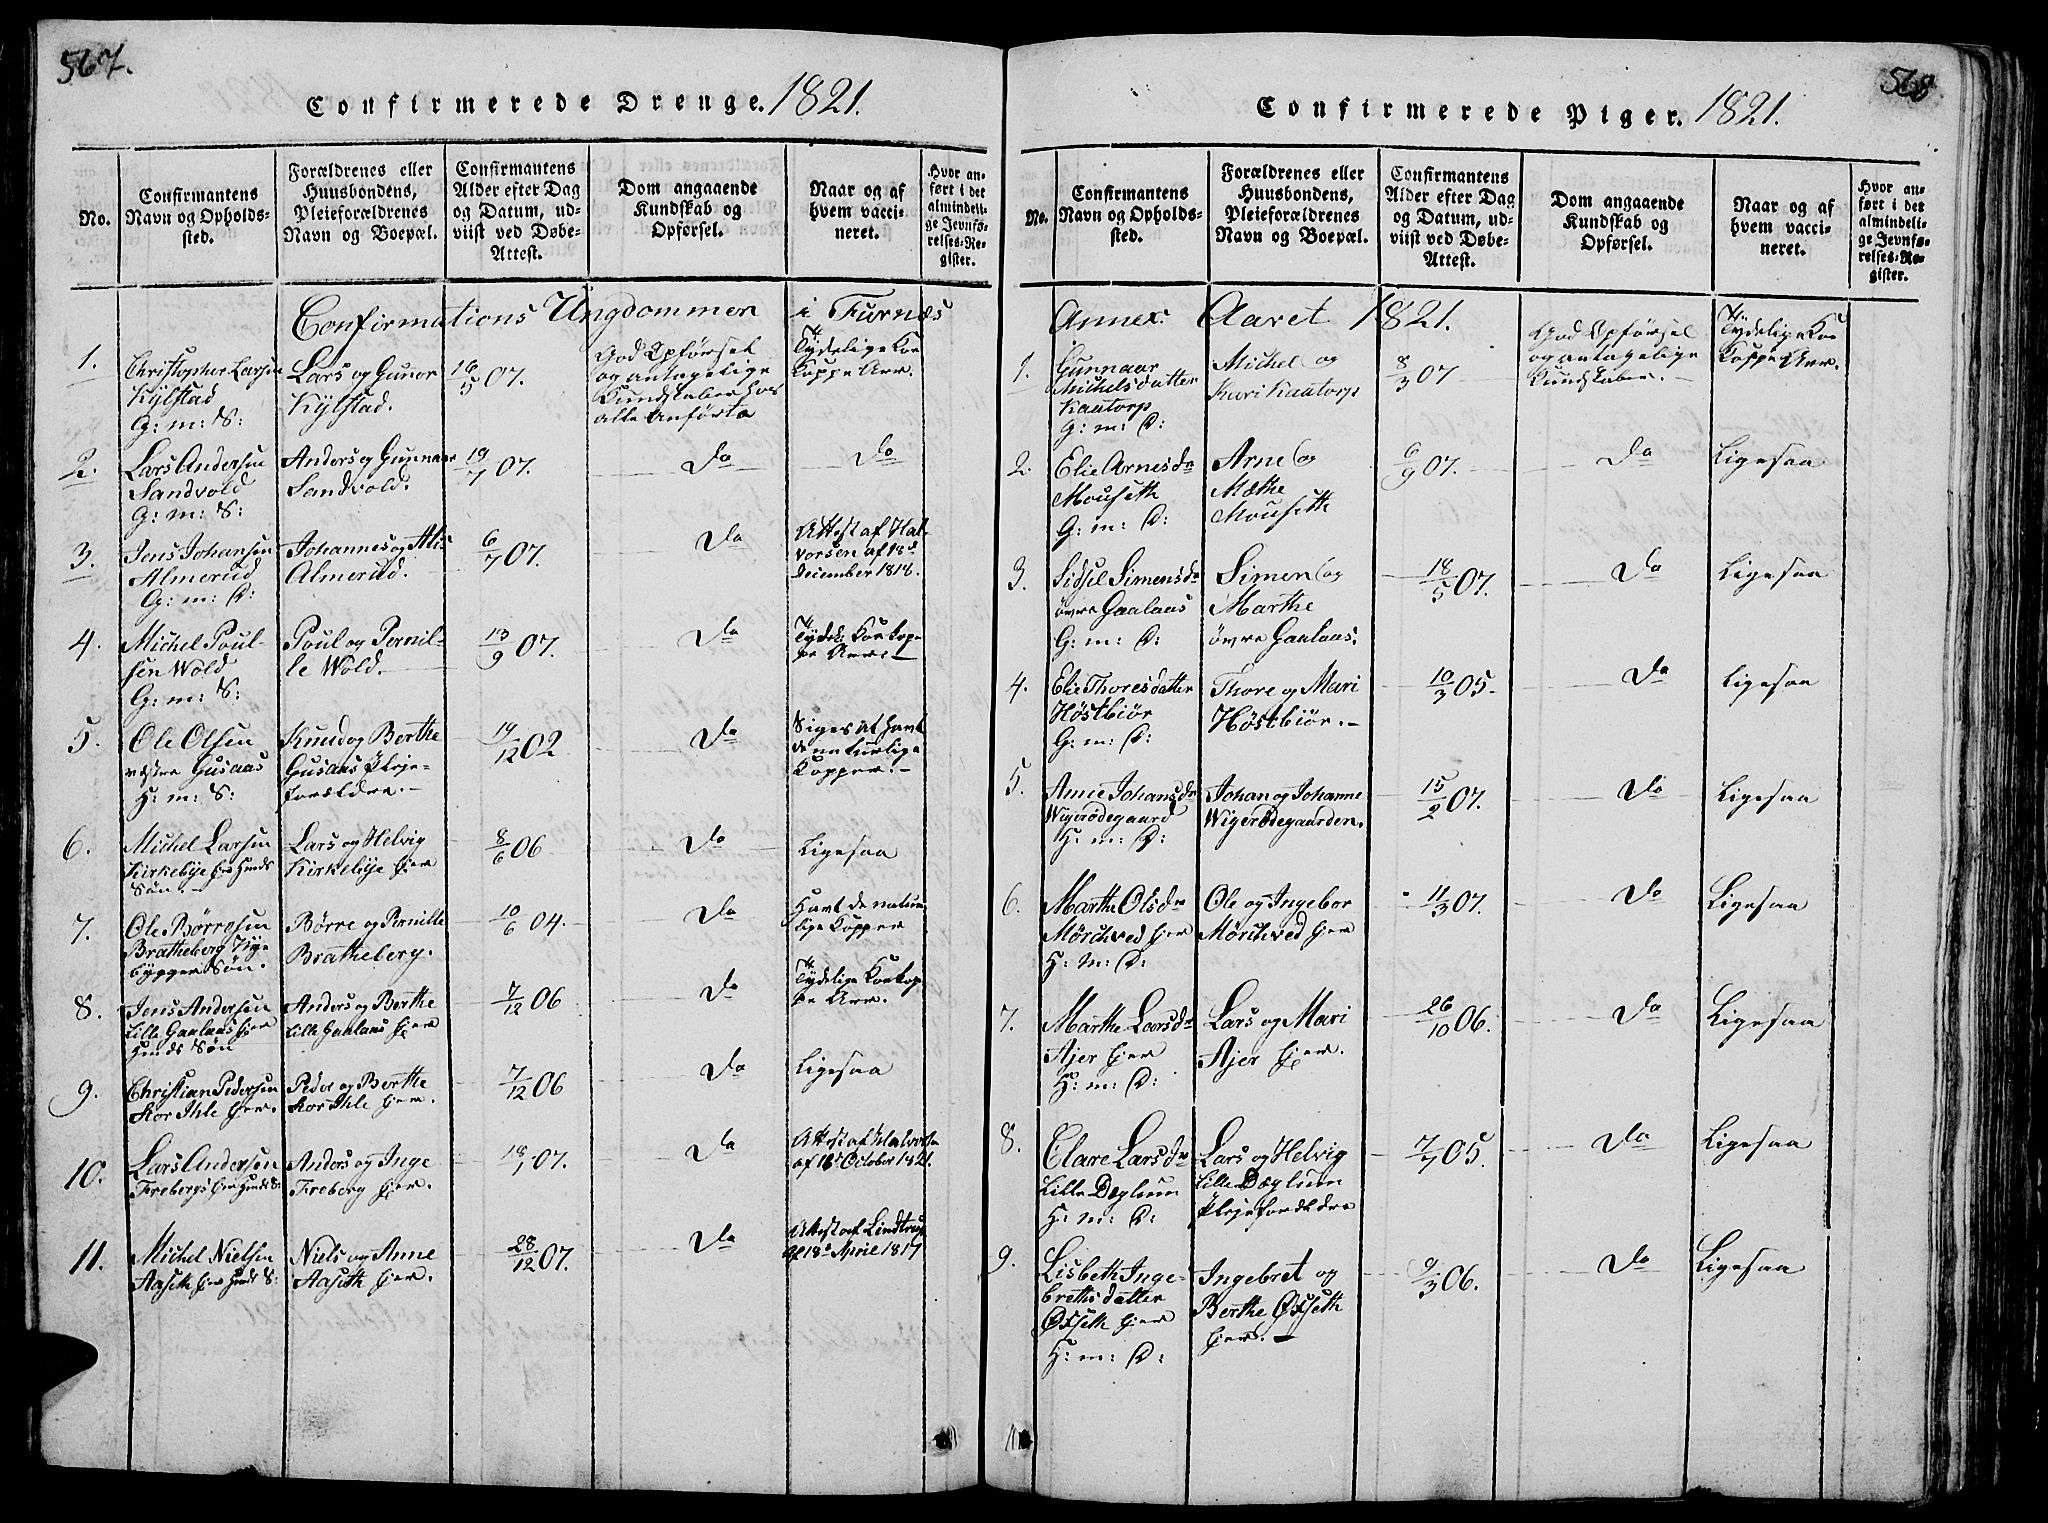 567.
Confirmerede Drenge. 1821.
No.
Confirmantens
Navn og Opholds-
sted.
Forældrenes eller
Huusbondens,
Pleieforældrenes
Navn og Boepæl.
Confirmantens
Alder efter Dag
og Datum, ud-
viist ved Døbe-
Attest.
Dom angaaende
Kundskab og
Opførsel.
Naar og af
hvem vacci-
neret.
Hvor an-
ført i det
almindeli-
ge Jevnfø-
relses-Re-
gister.
Confirmations Ungdommen i Furnæs
1.
Christopher Larsen
Kylstad
G: m: S:
Lars og Gunor
Kylstad.
16/5 07.
God Opførsel
og antagelige
Kundskaber hos
alle Anførte
Tydelige Koe
Koppe Arr.
2.
Lars Andersen
Sandvold
G: m: S:
Anders og Gunnor
Sandvold.
19/7 07.
Do
Do
3.
Jens Johansen
Almerud
G: m: S:
Johannes og Alis
Almerud.
6/7 07.
Do
Attest af Hal-
vorsen af 18d
December 1818.
4.
Michel Poul-
sen Wold
G: m: S:
Poul og Pernil-
le Wold.
13/9 07.
Do
Tydel: Koe Kop-
pe Arr.
5.
Ole Olsen
vestre Gusaas
H: m: S:
Knud og Berthe
Gusaas Pleje-
forældre.
19/12 02
Do
Siges at havt
de naturlige
Kopper.
6.
Michel Larsen
Kirkebye Eier Huuds
Søn.
Lars og Helvig
Kirkebye Eier
8/6 06
Do
Ligesaa
7.
Ole Børresen
Bratheberg Nye
bygger Søn.
Børre og Pernille
Bratheberg.
10/6 04.
Do
Havt de natur-
lige Kopper
8.
Jens Andersen
Lille Gaalaas Eier
Huuds Søn
Anders og Berthe
Lille Gaalaas Eier
7/12 06
Do
Tydelige Koekop-
pe Arr.
9.
Christian Pedersen
Kor Ihle Eier.
Peder og Berthe
Kor Ihle Eier.
7/12 06
Do
Ligesaa
10.
Lars Andersen
Freberg Eier Huuds S:
Anders og Inge
Freberg Eier.
18/1 07.
Do
Attest af Halvorsen
af 18d October 1821.
11.
Michel Nielsen
Aaseth Eier Huuds S:
Niels og Anne
Aaseth Eier.
28/12 07.
Do
Attest af Lindtrup
af 18d April 1817
568
Confirmerede Piger. 1821.
No.
Confirmantens
Navn og Opholds-
sted.
Forældrenes eller
Huusbondens,
Pleieforældrenes
Navn og Boepæl.
Confirmantens
Alder efter Dag
og Datum, ud-
viist ved Døbe-
Attest.
Dom angaaende
Kundskab og
Opførsel.
Naar og af
hvem vacci-
neret.
Hvor an-
ført i det
almindeli-
ge Jevnfø-
relses-Re-
gister.
Annex. Aaret 1821.
1.
Gunnaar
Michelsdatter
Kaatorp
G: m: D:
Michel og
Kari Kaatorp
8/3 07
God Opførsel
og antagelige
Kundskaber.
Tydelige Koe
Koppe Arr.
2.
Elie Arnesdr
Mouseth
G: m: D:
Arne og
Mæthe
Mouseth
6/9 07.
Do
Ligesaa
3.
Sidsel Simensdr
övre Gaalaas
G: m: D:
Simen og
Marthe
övre Gaalaas.
18/5 07.
Do
Ligesaa
4.
Elie Thoresdatter
Höstbiör
G: m: D:
Thore og Mari
Höstbiör.
10/3 05.
Do
Ligesaa
5.
Anne Johansdr
Wigerødegaard
H: m: D:
Johan og Johanne
Wigerødegaarden.
15/2 07.
Do
Ligesaa
6.
Marthe Olsdr
Mörchved Eier
H: m: D:
Ole og Ingebor
Mörchved Eier
11/3 07.
Do
Ligesaa
7.
Marthe Larsdr
Ajer Eier
H: m: D:
Lars og Mari
Ajer Eier.
26/10 06.
Do
Ligesaa
8.
Clare Larsdr
Lille Dæglum
H: m: D:
Lars og Helvig
Lille Dæglum
Plejeforældre
7/7 05.
Do
Ligesaa
9.
Lisbeth Inge-
brethsdatter
Øxseth Eier
H: m: D:
Ingebret og
Berthe Øxseth
Eier.
9/3 06.
Do
Ligesaa